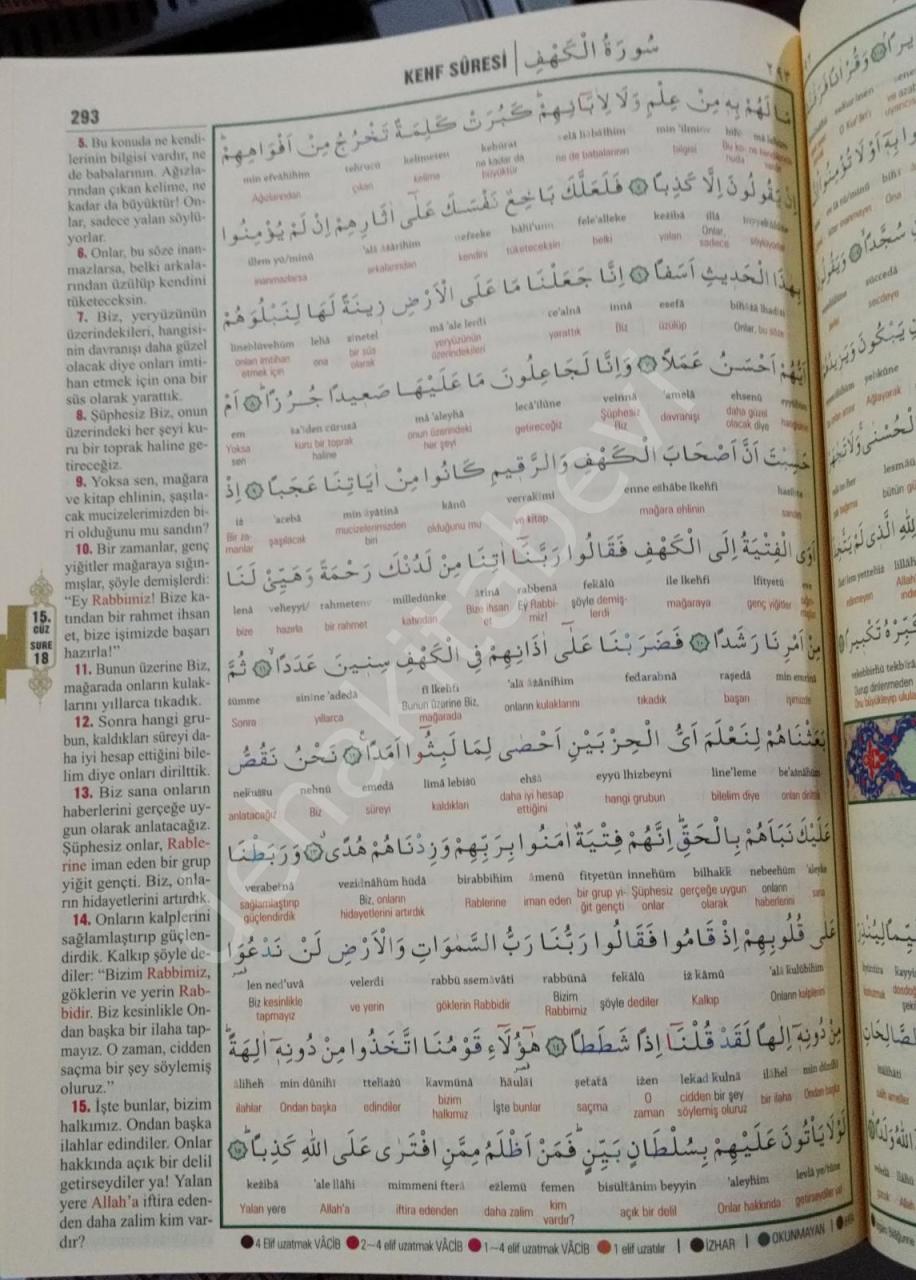 KEHF SÛRESİ | سُورَةُ الْكَهْفِ
٢٩٣
293
5. Bu konuda ne kendi-
lerinin bilgisi vardır, ne
de babalarının. Ağızla-
rından çıkan kelime, ne
kadar da büyüktür! On-
lar, sadece yalan söylü-
yorlar.
6. Onlar, bu söze inan-
mazlarsa, belki arkala-
rından üzülüp kendini
tüketeceksin.
7. Biz, yeryüzünün
üzerindekileri, hangisi-
nin davranışı daha güzel
olacak diye onları imti-
han etmek için ona bir
süs olarak yarattık.
8. Şüphesiz Biz, onun
üzerindeki her şeyi ku-
ru bir toprak haline ge-
tireceğiz.
9. Yoksa sen, mağara
ve kitap ehlinin, şaşıla-
cak mucizelerimizden bi-
ri olduğunu mu sandın?
10. Bir zamanlar, genç
yiğitler mağaraya sığın-
mışlar, şöyle demişlerdi:
"Ey Rabbimiz! Bize ka-
tından bir rahmet ihsan
et, bize işimizde başarı
hazırla!"
11. Bunun üzerine Biz,
mağarada onların kulak-
larını yıllarca tıkadık.
12. Sonra hangi gru-
bun, kaldıkları süreyi da-
ha iyi hesap ettiğini bile-
lim diye onları dirilttik.
13. Biz sana onların
haberlerini gerçeğe uy-
gun olarak anlatacağız.
Şüphesiz onlar, Rable-
rine iman eden bir grup
yiğit gençti. Biz, onla-
rın hidayetlerini artırdık.
14. Onların kalplerini
sağlamlaştırıp güçlen-
dirdik. Kalkıp şöyle de-
diler: "Bizim Rabbimiz,
göklerin ve yerin Rab-
bidir. Biz kesinlikle On-
dan başka bir ilaha tap-
mayız. O zaman, cidden
saçma bir şey söylemiş
oluruz."
15. İşte bunlar, bizim
halkımız. Ondan başka
ilahlar edindiler. Onlar
hakkında açık bir delil
getirseydiler ya! Yalan
yere Allah'a iftira eden-
den daha zalim kim var-
dır?
15.
CÜZ
SURE
18
مَا لَهُمْ بِهِ مِنْ عِلْمٍ وَلَا لِاٰبَٓائِهِمْۜ كَبُرَتْ كَلِمَةً تَخْرُجُ مِنْ اَفْوَاهِهِمْۜ
min efvâhihim tehrucü kelimeten kebürat velâ liâbâihim min 'ilmiņv
Ağızlarından çıkan kelime ne kadar da büyüktür ne de babalarının bilgisi
اِنْ يَقُولُونَ اِلَّا كَذِبًا ﴿٥﴾ فَلَعَلَّكَ بَاخِعٌ نَفْسَكَ عَلٰٓى اٰثَارِهِمْ اِنْ لَمْ يُؤْمِنُوا
illem yü/minû 'alâ âsârihim nefseke bâhi'un fele'alleke keżibâ illâ
inanmazlarsa arkalarından kendini tüketeceksin belki yalan Onlar, sadece söylüyorlar
بِهٰذَا الْحَدِيثِ اَسَفًا ﴿٦﴾ اِنَّا جَعَلْنَا مَا عَلَى الْاَرْضِ زِينَةً لَهَا لِنَبْلُوَهُمْ
lineblüvehüm lehâ zînetel mâ 'ale lerdi ce'alnâ innâ esefâ
onları imtihan etmek için ona bir süs olarak yeryüzünün üzerindekileri yarattık Biz üzülüp Onlar, bu söze
اَيُّهُمْ اَحْسَنُ عَمَلًا ﴿٧﴾ وَاِنَّا لَجَاعِلُونَ مَا عَلَيْهَا صَعِيدًا جُرُزًاۜ ﴿٨﴾ اَمْ
em sa'îden cüruzâ mâ 'aleyhâ lecâ'ilûne veinnâ 'amelâ ehsenü
Yoksa sen kuru bir toprak haline onun üzerindeki her şeyi getireceğiz Şüphesiz Biz davranışı daha güzel olacak diye
حَسِبْتَ اَنَّ اَصْحَابَ الْكَهْفِ وَالرَّقِيمِ كَانُوا مِنْ اٰيَاتِنَا عَجَبًا ﴿٩﴾ اِذْ
iż 'acebâ min âyâtinâ kânû verrakîmi enne eshâbe lkehfi
Bir zamanlar şaşılacak mucizelerimizden biri olduğunu mu ve kitap mağara ehlinin
اَوَى الْفِتْيَةُ اِلَى الْكَهْفِ فَقَالُوا رَبَّنَٓا اٰتِنَا مِنْ لَدُنْكَ رَحْمَةً وَهَيِّئْ لَنَا
lenâ veheyyi/ rahmeteņv milledünke âtinâ rabbenâ fekâlû ile lkehfi lfityetü
bize hazırla bir rahmet katından Bize ihsan et Ey Rabbimiz! şöyle demişlerdi mağaraya genç yiğitler
مِنْ اَمْرِنَا رَشَدًا ﴿١٠﴾ فَضَرَبْنَا عَلٰٓى اٰذَانِهِمْ فِي الْكَهْفِ سِنِينَ عَدَدًا ﴿١١﴾ ثُمَّ
sümme sinîne 'adedâ fi lkehfi 'alâ âżânihim fedarabnâ raşedâ min emrinâ
Sonra yıllarca Bunun üzerine Biz, mağarada onların kulaklarını tıkadık başarı işimizde
بَعَثْنَاهُمْ لِنَعْلَمَ اَيُّ الْحِزْبَيْنِ اَحْصٰى لِمَا لَبِثُٓوا اَمَدًا ﴿١٢﴾ نَحْنُ نَقُصُّ
nekussu nehnü emedâ limâ lebisû ehsâ eyyü lhizbeyni line'leme be'asnâhüm
anlatacağız Biz süreyi kaldıkları daha iyi hesap ettiğini hangi grubun bilelim diye onları dirilttik
عَلَيْكَ نَبَاَهُمْ بِالْحَقِّۜ اِنَّهُمْ فِتْيَةٌ اٰمَنُوا بِرَبِّهِمْ وَزِدْنَاهُمْ هُدًىۗ ﴿١٣﴾ وَرَبَطْنَا
verabetnâ vezidnâhüm hüdâ birabbihim âmenû fityetün innehüm bilhakk nebeehüm 'aleyke
sağlamlaştırıp güçlendirdik Biz, onların hidayetlerini artırdık Rablerine iman eden bir grup yiğit gençti Şüphesiz onlar gerçeğe uygun olarak onların haberlerini sana
عَلٰى قُلُوبِهِمْ اِذْ قَامُوا فَقَالُوا رَبُّنَا رَبُّ السَّمٰوَاتِ وَالْاَرْضِ لَنْ نَدْعُوَا۬
len ned'uvâ velerdi rabbü ssemâvâti rabbünâ fekâlû iż kâmû 'alâ kulûbihim
Biz kesinlikle tapmayız ve yerin göklerin Rabbidir Bizim Rabbimiz şöyle dediler Kalkıp Onların kalplerini
مِنْ دُونِهٖٓ اِلٰهًا لَقَدْ قُلْنَٓا اِذًا شَطَطًا ﴿١٤﴾ هٰٓؤُ۬لَٓاءِ قَوْمُنَا اتَّخَذُوا مِنْ دُونِهٖٓ اٰلِهَةًۜ
âliheh min dûnihî ttehażû kavmünâ hâulâi şetatâ iżen lekad kulnâ ilâhel min dûnihî
ilahlar Ondan başka edindiler bizim halkımız İşte bunlar saçma O zaman cidden bir şey söylemiş oluruz bir ilaha Ondan başka
لَوْلَا يَأْتُونَ عَلَيْهِمْ بِسُلْطَانٍ بَيِّنٍۜ فَمَنْ اَظْلَمُ مِمَّنِ افْتَرٰى عَلَى اللّٰهِ كَذِبًاۜ ﴿١٥﴾
keżibâ 'ale llâhi mimmeni fterâ ezlemü femen bisültânim beyyin 'aleyhim
Yalan yere Allah'a iftira edenden daha zalim kim vardır? açık bir delil Onlar hakkında getirseydiler ya!
4 Elif uzatmak VÂCİB 2–4 elif uzatmak VÂCİB 1–4 elif uzatmak VÂCİB 1 elif uzatılır | İZHAR | OKUNMAYAN